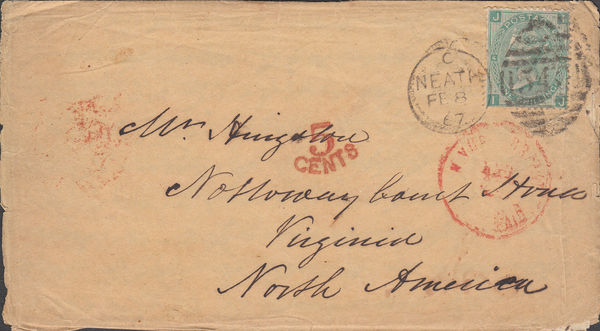 POSTAGE
C
NEATH
FE 8
67
Mr. Hingston
5
CENTS
Nottoway Court House
PAID
Virginia
North America